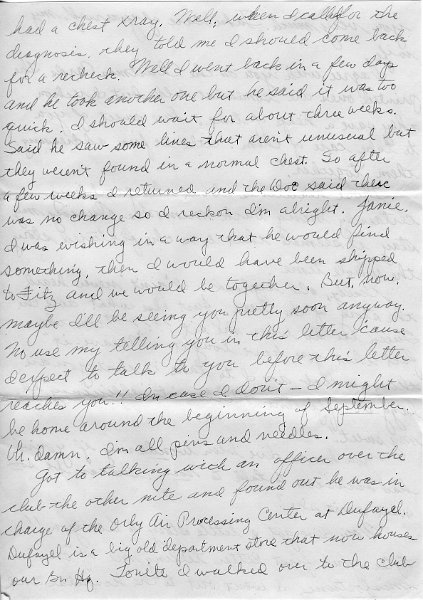 had a chest xray. Well, when I called for the
diagnosis, they told me I should come back
for a recheck. Well I went back in a few days
and he took another one but he said it was too
quick. I should wait for about three weeks.
Said he saw some lines that aren't unusual but
they weren't found in a normal chest. So after
a few weeks I returned and the Doc said there
was no change so I reckon I'm alright. Janie,
I was wishing in a way that he would find
something, then I would have been shipped
to Fitz and we would be together. But, now,
maybe I'll be seeing you pretty soon anyway.
No use my telling you in this letter 'cause
I expect to talk to you before this letter
reaches you!! In case I don't - I might
be home around the beginning of September.
Oh, damn. I'm all pins and needles.
Got to talking with an officer over the
club the other nite and found out he was in
charge of the Orly Air Processing Center at Dufayel.
Dufayel is a big old department store that now houses
our Bn Hq. Tonite I walked over to the club